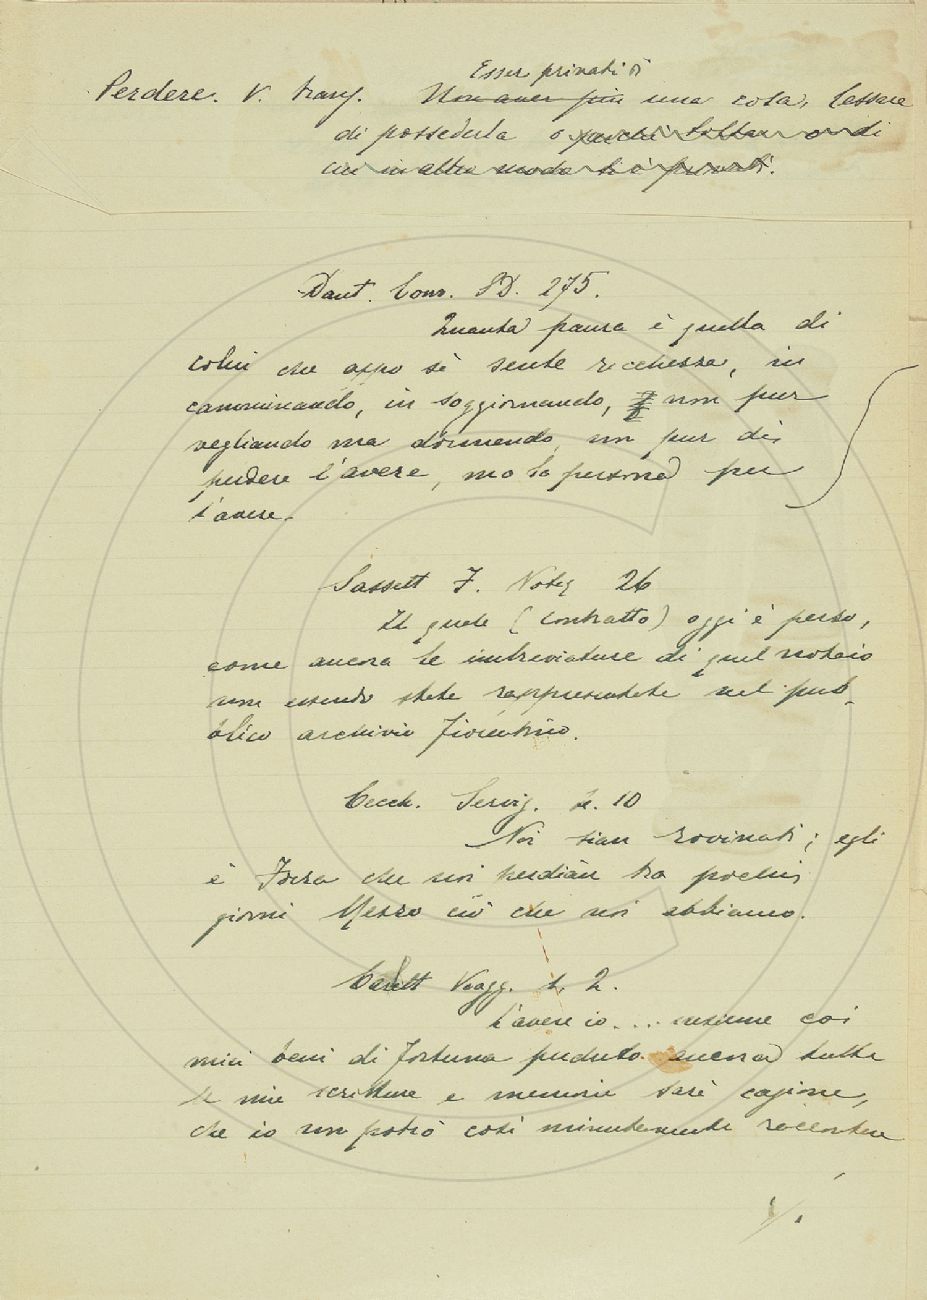 Esser privati di
Perdere. V. trans. Non aver più una cosa, Cessare
di possederla o perchè ci
cui in altro modo se è privati.
Dant. Conv. PD. 275.
Quanta paura è quella di
colui che appo sè sente ricchezza, in
camminando, in soggiornando, non pur
vegliando ma dormendo, non pur di
perdere l'avere, ma la persona per
l'avere.
Sassett F. Notiz 26
Il quale (contratto) oggi è perso,
come ancora le imbreviature di quel notaio
non essendo state rappresentate nel pub-
blico archivio fiorentino.
Cecch. Servig. 2. 10
Noi sian rovinati; egli
è forza che noi perdiàn tra pochi
giorni Mezzo ciò che noi abbiamo.
Carlett Viagg. 1. 2.
L'avere io.... insieme coi
miei beni di fortuna perduto ancora tutte
le mie scritture e memorie sarà cagione,
che io non potrò così minutamente raccontare